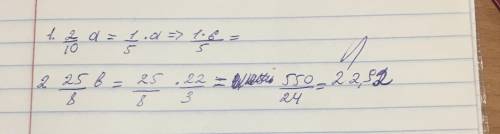 1. 2/10 a = 1/5 · a => 1·6/5 =
2 25/8 b = 25/8 · 22/3 = 550/24 = 22,92